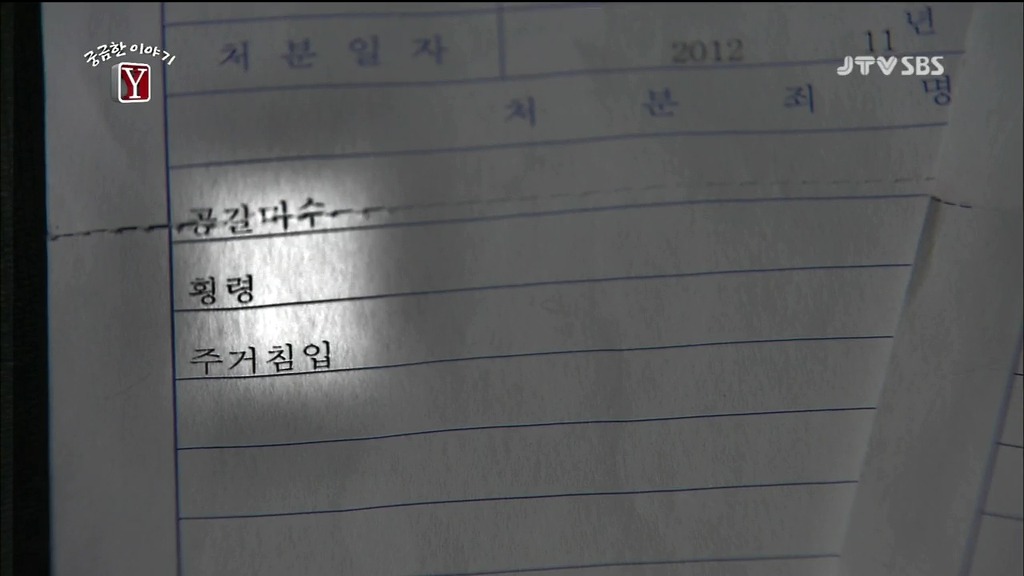 궁금한 이야기
Y
JTV SBS
처 분 일 자 2012 11 년
처 분 죄 명
공갈미수
횡령
주거침입